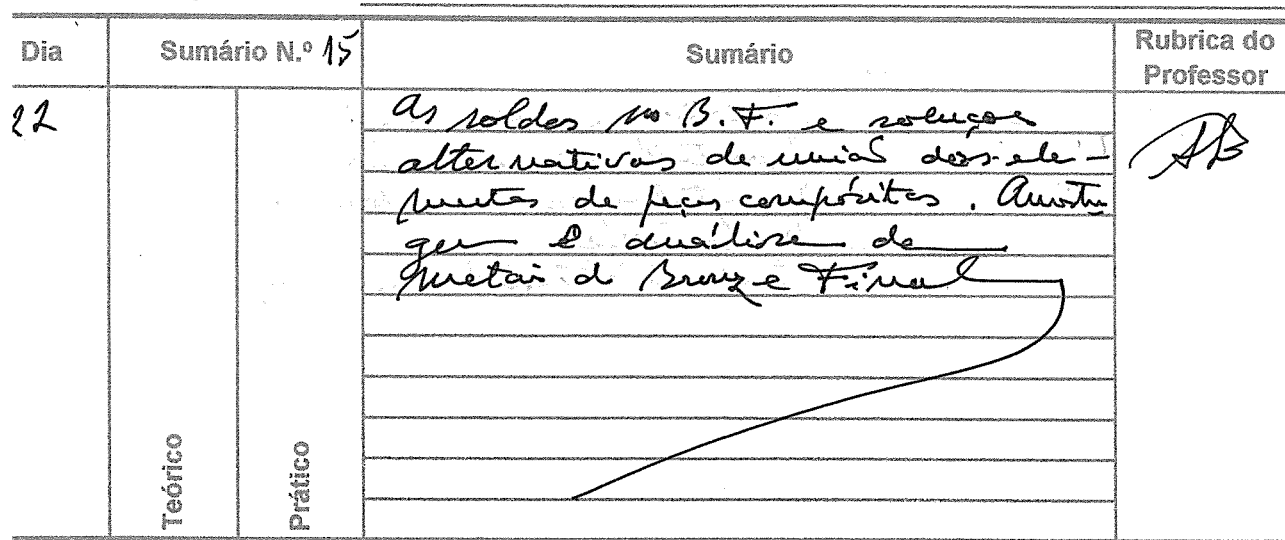 Dia
Sumário N.º 15
Sumário
Rubrica do
Professor
22
As soldas no B.F. e soluções
alternativas de união dos ele-
mentos de peças compósitas. Amostra
gem e análise de
metais do Bronze Final
Teórico
Prático
AB